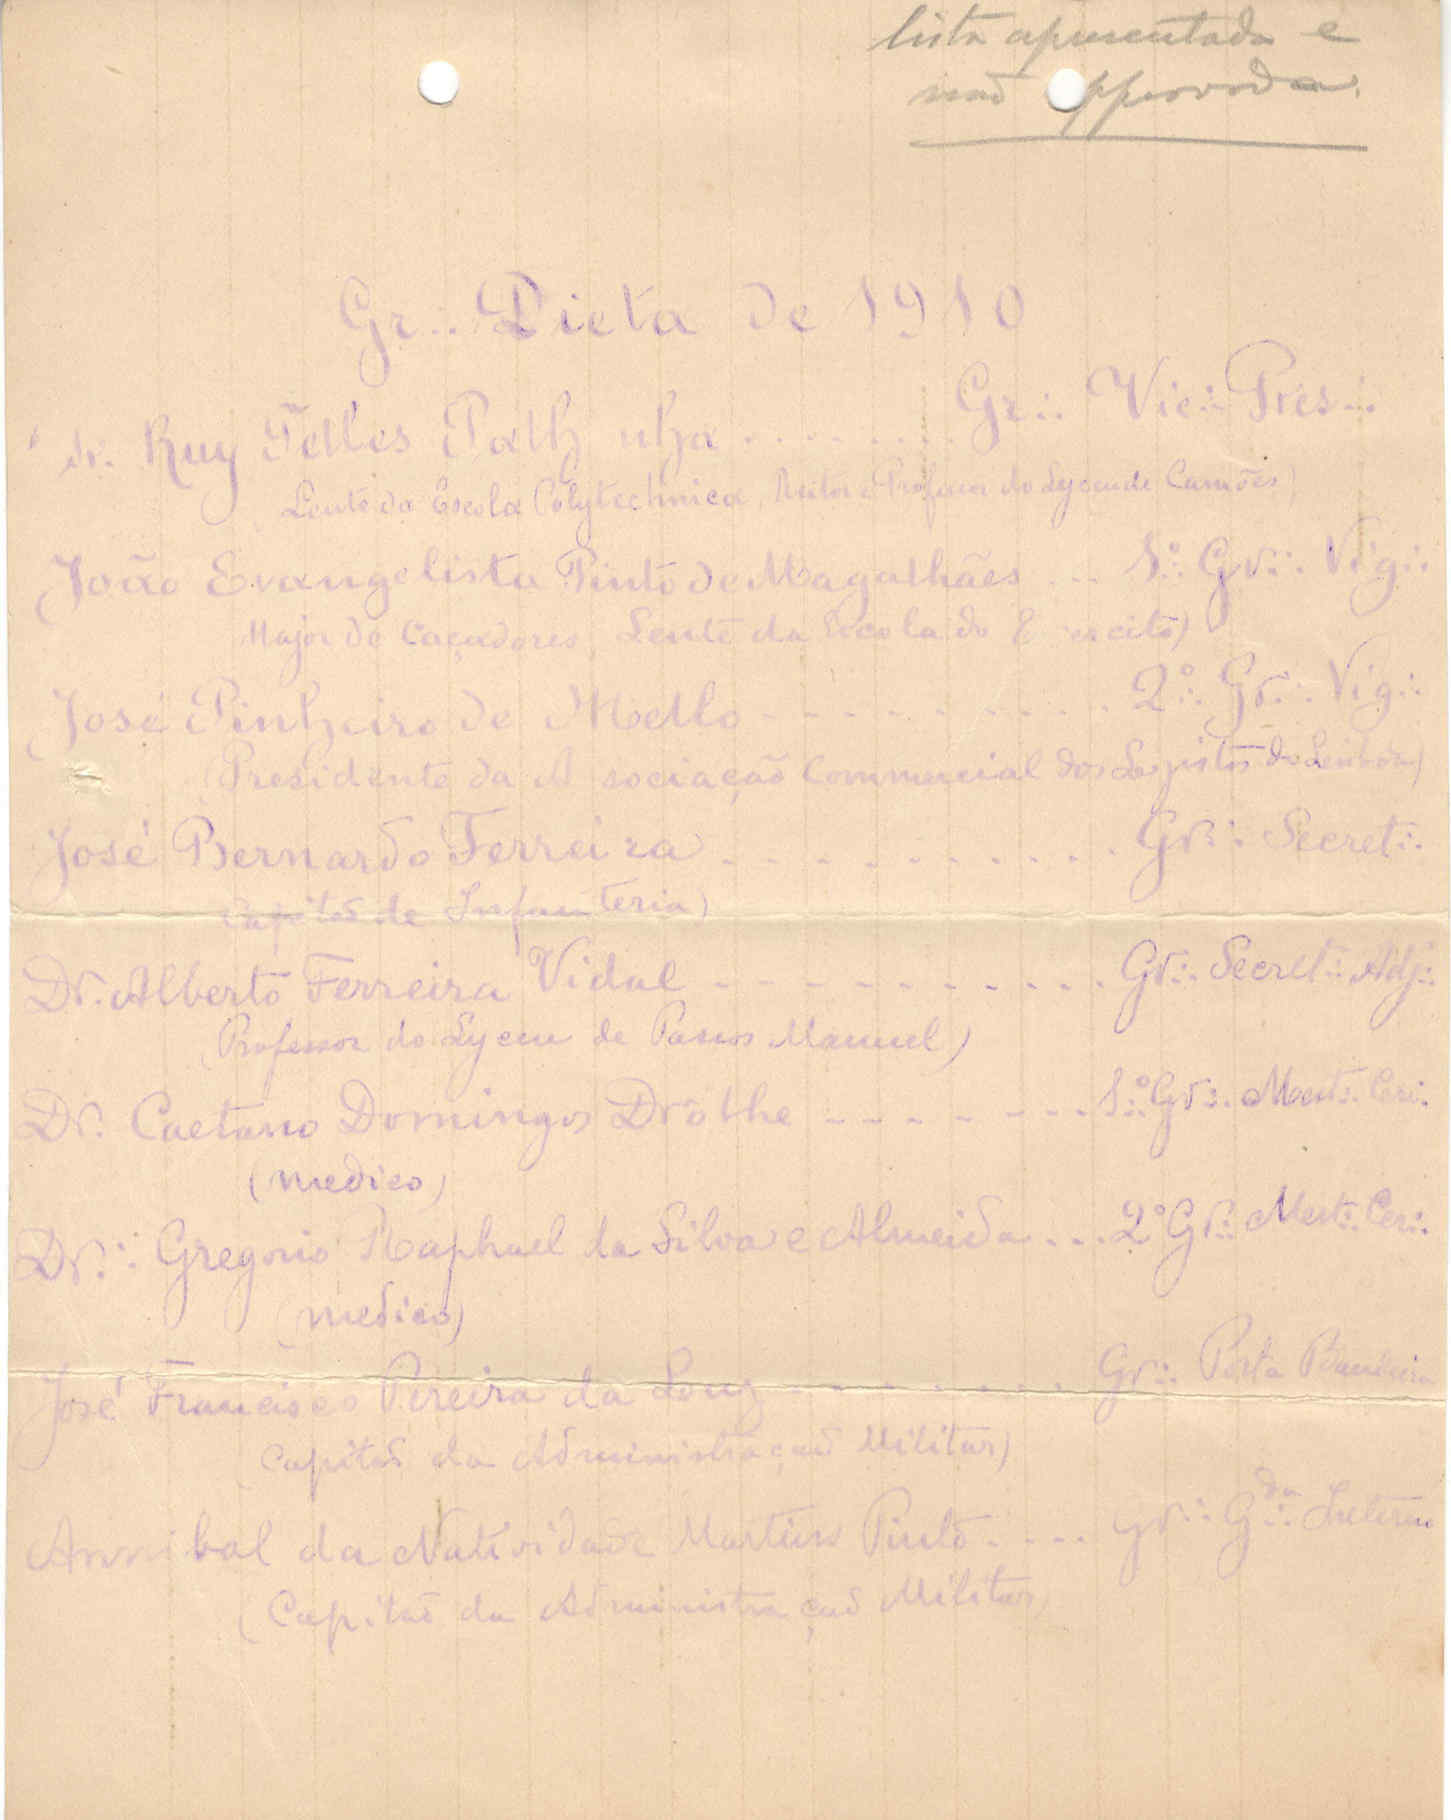 lista apresentada e
não approvada.
Gr∴ Dieta de 1910
Dr. Ruy Telles Palhinha . . . . . . . . Gr∴ Vic∴ Pres∴
Lente da Escola Polytechnica, Reitor e Professor do Lyceu de Camões)
João Evangelista Pinto de Magalhães ... 1º∴ Gr∴ Vig∴
Major de Caçadores, Lente da Escola do Exercito)
José Pinheiro de Mello - - - - - - - . . 2º∴ Gr∴ Vig∴
(Presidente da Associação Commercial dos Lojistas de Lisboa)
José Bernardo Ferreira . . . . . . . . . . . Gr∴ Secret∴
Capitão de Infanteria)
Dr. Alberto Ferreira Vidal - - - - - - - . . . . Gr∴ Secret∴ Adj∴
(Professor do Lyceu de Passos Manuel)
Dr. Caetano Domingos Drolhe - - - - - - - 1º∴ Gr∴ Mest∴ Cer∴
(medico)
Dr∴ Gregorio Raphael da Silva e Almeida . . . 2º Gr∴ Mest∴ Cer∴
(medico)
José Francisco Pereira da Luz - - - - - - . . Gr∴ Porta Bandeira
Capitão da Administração Militar)
Annibal da Natividade Martins Pinto . . . . Gr∴ Gda∴ Interno
(Capitão da Administração Militar)